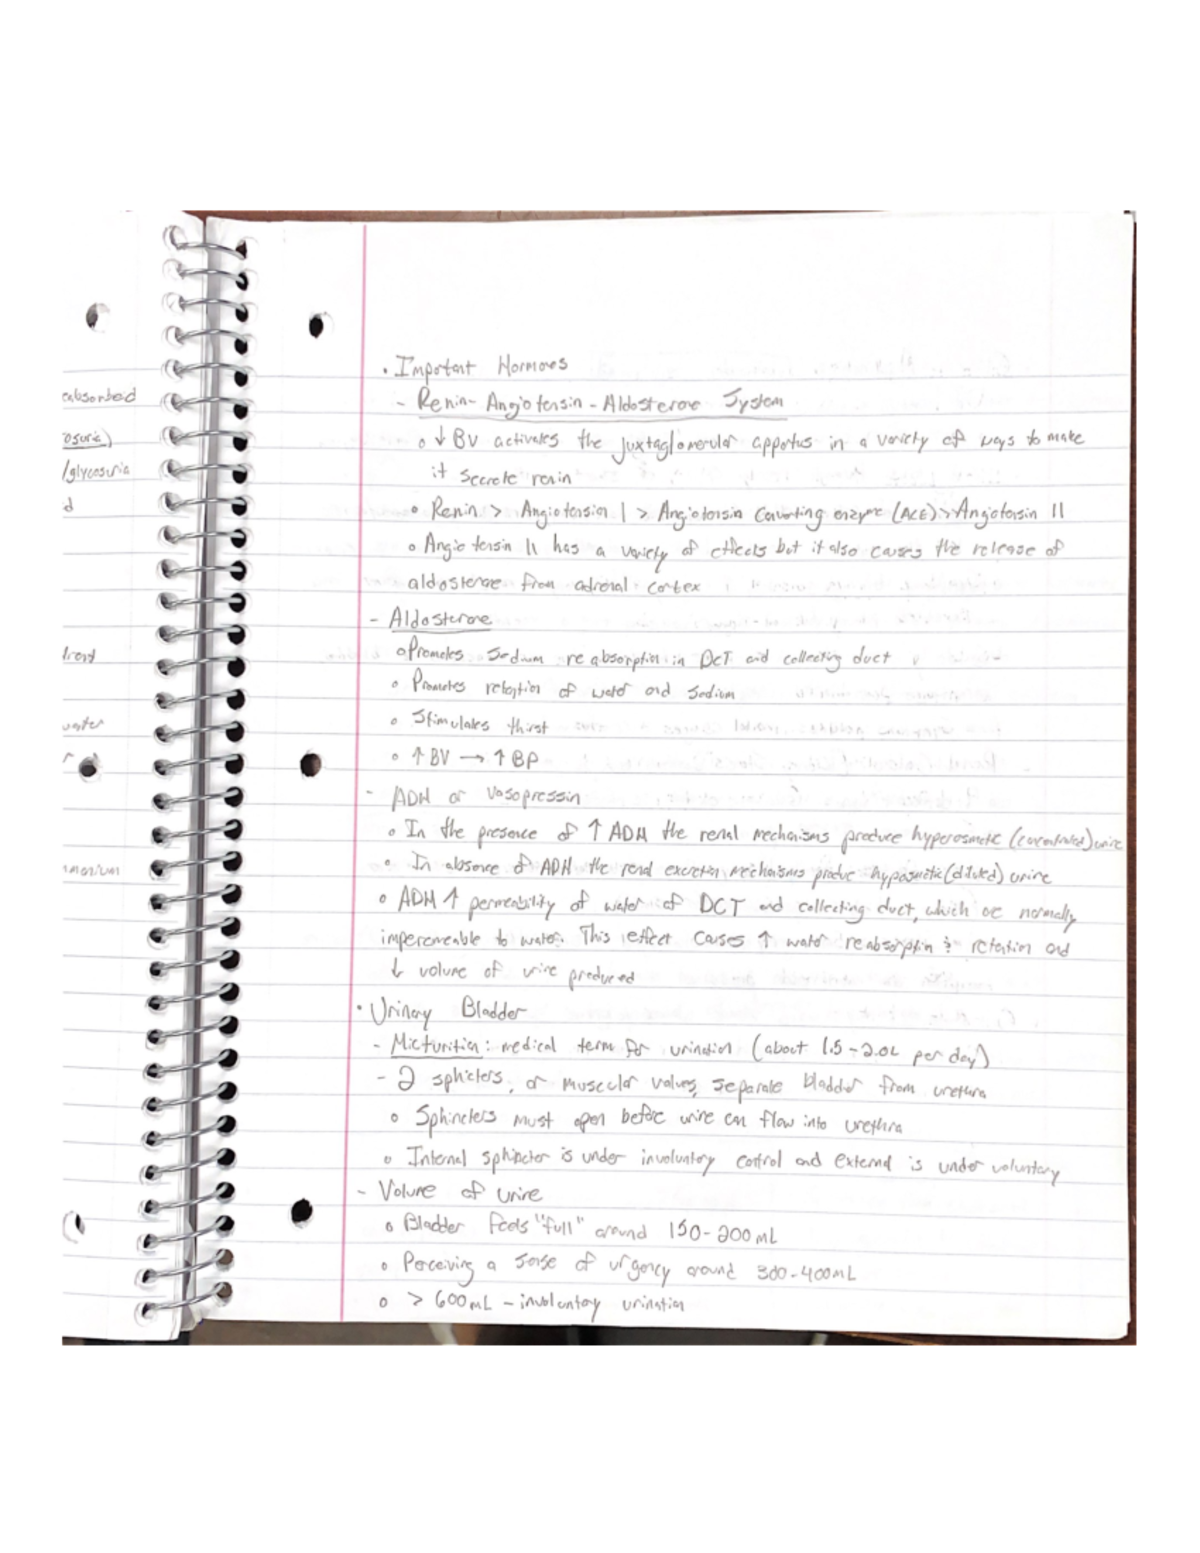 absorbed
osuria)
/glycosuria
d
water
r
mmonium
• Important Hormones
- Renin-Angiotensin-Aldosterone System
o ↓ BV activates the juxtaglomerular appartus in a variety of ways to make
it secrete renin
o Renin > Angiotensin I > Angiotensin Converting enzyme (ACE) > Angiotensin II
o Angiotensin II has a variety of effects but it also causes the release of
aldosterone from adrenal cortex
- Aldosterone
o Promotes Sodium reabsorption in DCT and collecting duct
o Promotes retention of water and Sodium
o Stimulates thirst
o ↑ BV → ↑ BP
- ADH or Vasopressin
o In the presence of ↑ ADH the renal mechanisms produce hyperosmotic (concentrated) urine
o In absence of ADH the renal excretion mechanisms produce hyposmotic (diluted) urine
o ADH ↑ permeability of water of DCT and collecting duct, which are normally
impermeable to water. This effect causes ↑ water reabsorption & retention and
↓ volume of urine produced
• Urinary Bladder
- Micturition: medical term for urination (about 1.5-2.0L per day)
- 2 sphicters, or muscular valves, separate bladder from urethra
o Sphincters must open before urine can flow into urethra
o Internal sphincter is under involuntary control and external is under voluntary
- Volume of urine
o Bladder feels "full" around 150-200mL
o Perceiving a sense of urgency around 300-400mL
o > 600mL - involuntary urination